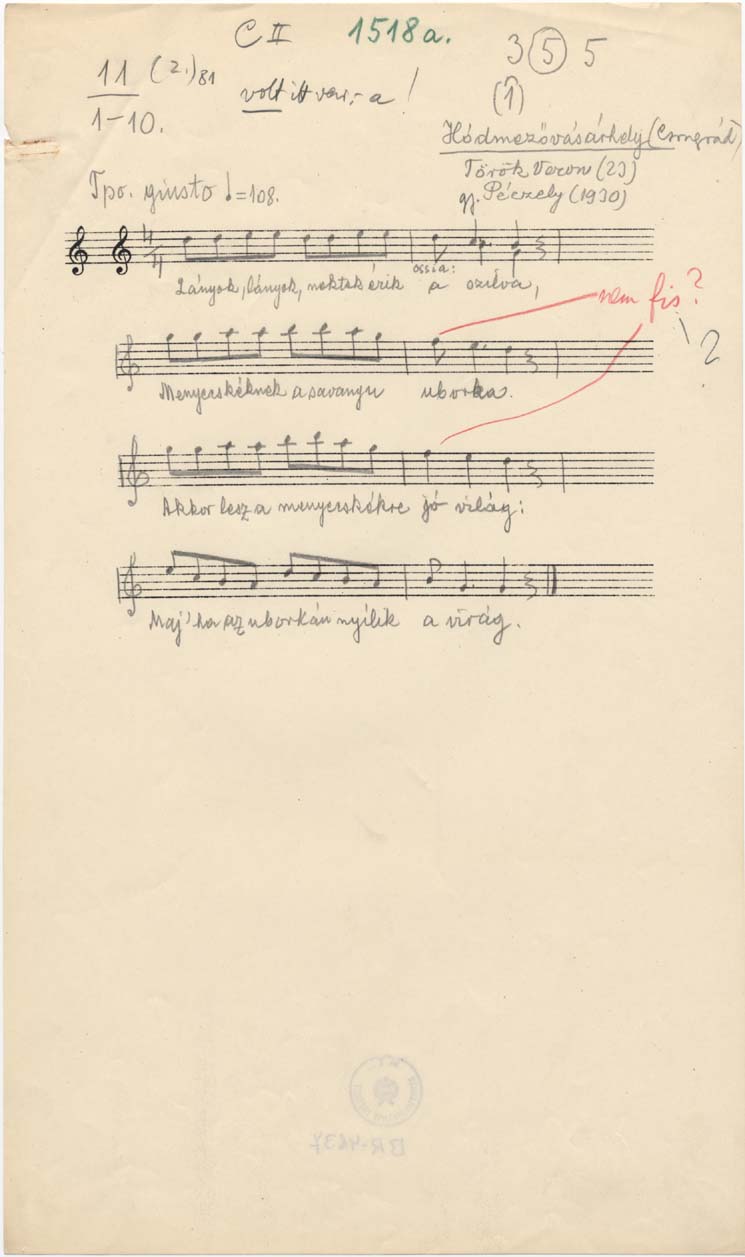 C II 1518a. 3 5 5
11 (2.) 81
1-10.
volt itt var.-a! (1)
Hódmezővásárhely (Csongrád)
Török Veron (23)
gy. Péczely (1930)
Tpo. giusto ♩=108.
4
4
ossia:
Lányok, lányok, noktok érik a szilva,
nem fis?
?
Menyecskéknek a savanyu uborka.
Akkor lesz a menyecskékre jó világ:
Maj' ha az uborkán nyílik a virág.
BR-4637